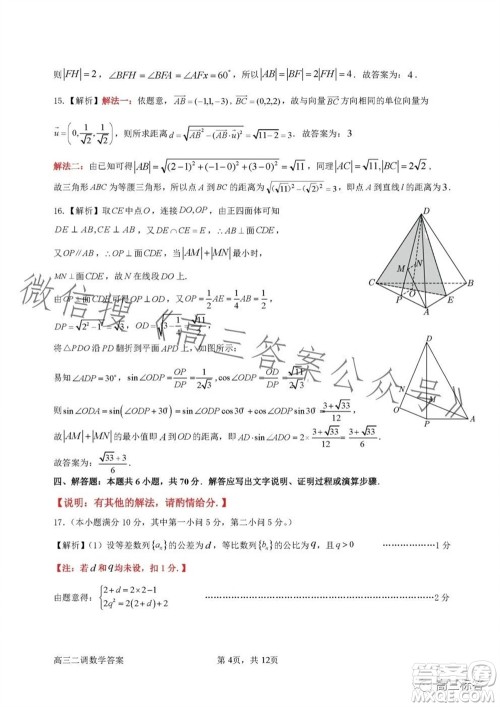 则|FH|=2，∠BFH=∠BFA=∠AFx=60°，所以|AB|=|BF|=2|FH|=4．故答案为：4．
15.【解析】解法一：依题意，AB=(-1,1,-3)，BC=(0,2,2)，故与向量BC方向相同的单位向量为
u=(0,1/√2,1/√2)，则所求距离d=√(AB²-(AB·u)²)=√(11-2)=3．故答案为：3
解法二：由已知可得|AB|=√((2-1)²+(-1-0)²+(3-0)²)=√11，同理|AC|=√11,|BC|=2√2．
故三角形ABC为等腰三角形，所以点A到BC的距离为√((√11)²-(√2)²)=3，即点A到直线l的距离为3．
16.【解析】取CE中点O，连接DO,OP，由正四面体可知
DE⊥AB,CE⊥AB，又DE∩CE=E，∴AB⊥面CDE，
又∵OP∥AB，∴OP⊥面CDE，当|AM|+|MN|最小时，
MN⊥面CDE，故N在线段DO上．
由OP⊥面CDE可得OP⊥OD，又OP=1/2AE=1/4AB=1/2，
DP=√(2²-1²)=√3，OD=√(3-1/4)=√11/2，
将△PDO沿PD翻折到平面APD上，如图所示：
易知∠ADP=30°，sin∠ODP=OP/DP=1/(2√3),cos∠ODP=OD/DP=√11/(2√3)，
则sin∠ODA=sin(∠ODP+30°)=sin∠ODPcos30°+cos∠ODPsin30°=(3+√33)/12，
故|AM|+|MN|的最小值即A到OD的距离，即AD·sin∠ADO=2×(3+√33)/12=(3+√33)/6．
故答案为：(√33+3)/6．
四、解答题：本题共6小题，共70分．解答应写出文字说明、证明过程或演算步骤．
【说明：有其他的解法，请酌情给分．】
17.（本小题满分10分，其中第一小问5分，第二小问5分．）
【解析】（1）设等差数列{aₙ}的公差为d，等比数列{bₙ}的公比为q，且q>0 ………………1分
【注：若d和q均未设，扣1分．】
由题意得：{2+d=2×2-1
2q²=2+2+d ………………2分
高三二调数学答案 第4页，共12页
D
M
N
C
O
B
P
E
A
D
O
M
P
A
微信搜《高三答案公众号》
高三标答